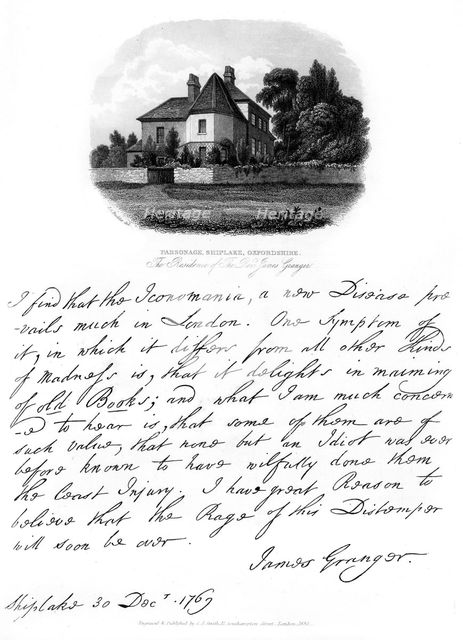 Heritage Heritage
PARSONAGE, SHIPLAKE, OXFORDSHIRE.
The Residence of The Revd. James Granger
I find that the Iconomania, a new Disease pre
-vails much in London. One Symptom of
it, in which it differs from all other Kinds
of Madness is, that it delights in maiming
of old Books; and what I am much concern
-ed to hear is, that some of them are of
such value, that none but an Idiot was ever
before known to have wilfully done them
the least Injury. I have great Reason to
believe that the Rage of this Distemper
will soon be over.
James Granger.
Shiplake 30 Decr. 1769
Engraved & Published by C. J. Smith, Southampton Street, London,